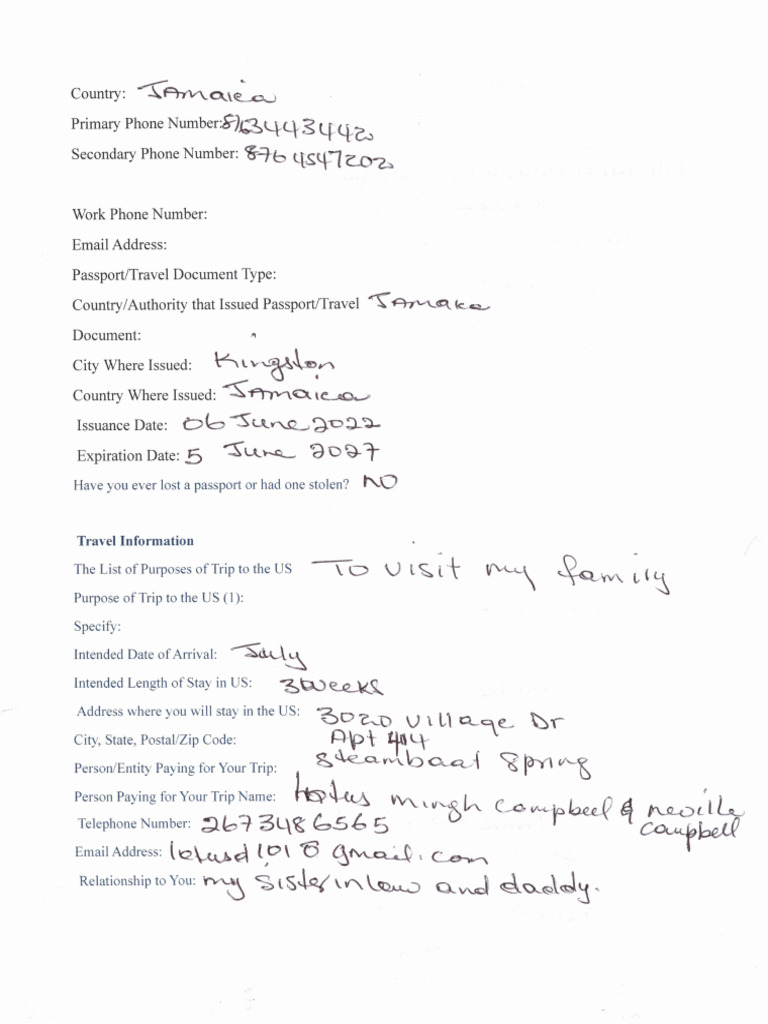 Country: JAmaica
Primary Phone Number: 8763443442
Secondary Phone Number: 8764547202
Work Phone Number:
Email Address:
Passport/Travel Document Type:
Country/Authority that Issued Passport/Travel JAmaka
Document:
City Where Issued: Kingston
Country Where Issued: JAmaica
Issuance Date: 06 June 2022
Expiration Date: 5 June 2027
Have you ever lost a passport or had one stolen? NO
Travel Information
The List of Purposes of Trip to the US To visit my family
Purpose of Trip to the US (1):
Specify:
Intended Date of Arrival: July
Intended Length of Stay in US: 3 weeks
Address where you will stay in the US: 3020 Village Dr
City, State, Postal/Zip Code: Apt 414
Person/Entity Paying for Your Trip: Steambaat Spring
Person Paying for Your Trip Name: mingh campbell & neville
campbell
Telephone Number: 2673486565
Email Address: gmail.com
Relationship to You: my sister in law and daddy.